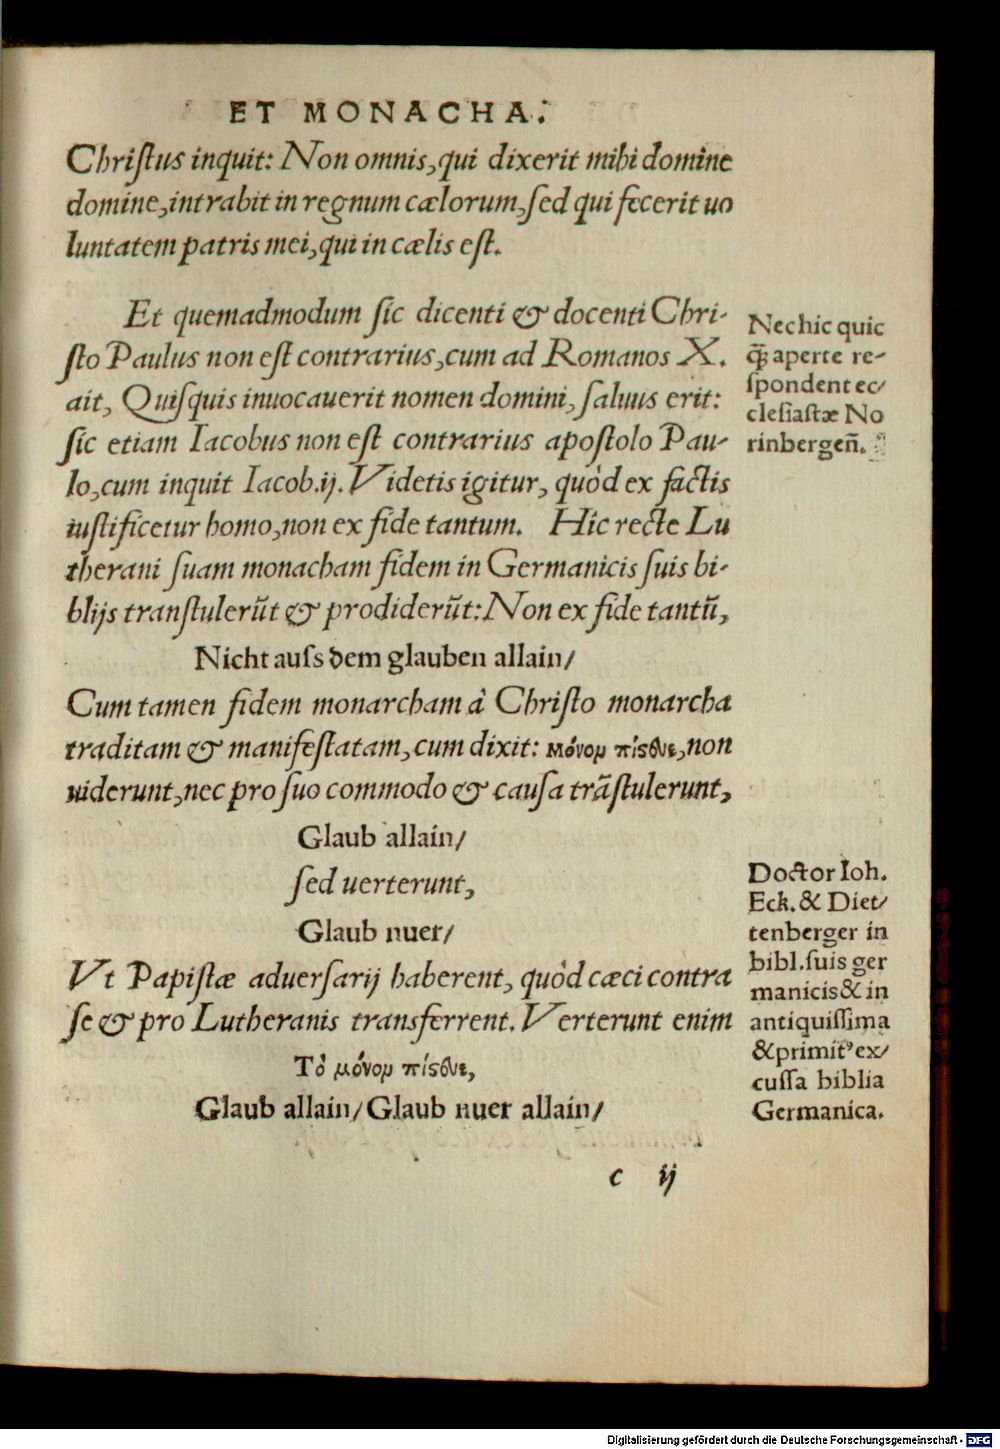 ET MONACHA.
Chriſtus inquit: Non omnis, qui dixerit mihi domine
domine, intrabit in regnum cælorum, ſed qui fecerit uo
luntatem patris mei, qui in cælis eſt.
Et quemadmodum ſic dicenti & docenti Chri-
ſto Paulus non eſt contrarius, cum ad Romanos X.
ait, Quiſquis inuocauerit nomen domini, ſaluus erit:
ſic etiam Iacobus non eſt contrarius apoſtolo Pau-
lo, cum inquit Iacob.ij. Videtis igitur, quòd ex factis
iuſtificetur homo, non ex fide tantum. Hîc recte Lu
therani ſuam monacham fidem in Germanicis ſuis bi-
blijs tranſtulerūt & prodiderūt: Non ex fide tantū,
Nicht auſs dem glauben allain/
Cum tamen fidem monarcham à Chriſto monarcha
traditam & manifeſtatam, cum dixit: μόνον πίστευε, non
uiderunt, nec pro ſuo commodo & cauſa trāſtulerunt,
Glaub allain/
ſed uerterunt,
Glaub nuer/
Vt Papiſtæ aduerſarij haberent, quòd cæci contra
ſe & pro Lutheranis transferrent. Verterunt enim
Τὸ μόνον πίστευε,
Glaub allain/Glaub nuer allain/
c ij
Nec hic quic
q̄ꝫ aperte re-
ſpondent ec/
cleſiaſtæ No
rinbergen̄.
Doctor Ioh.
Eck. & Diet/
tenberger in
bibl. ſuis ger
manicis & in
antiquiſſima
& primit⁹ ex/
cuſſa biblia
Germanica.
Digitalisierung gefördert durch die Deutsche Forschungsgemeinschaft - DFG